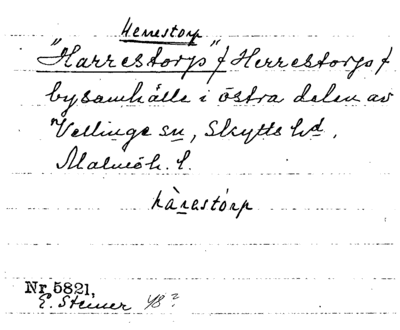 Herrestorp
"Harrestorp" / Herrestorp /
bysamhälle i östra delen av
Vellinge sn, Skytts hd,
Malmöh. l.
hàrestórp
Nr 5821,
E. Steiner 48?